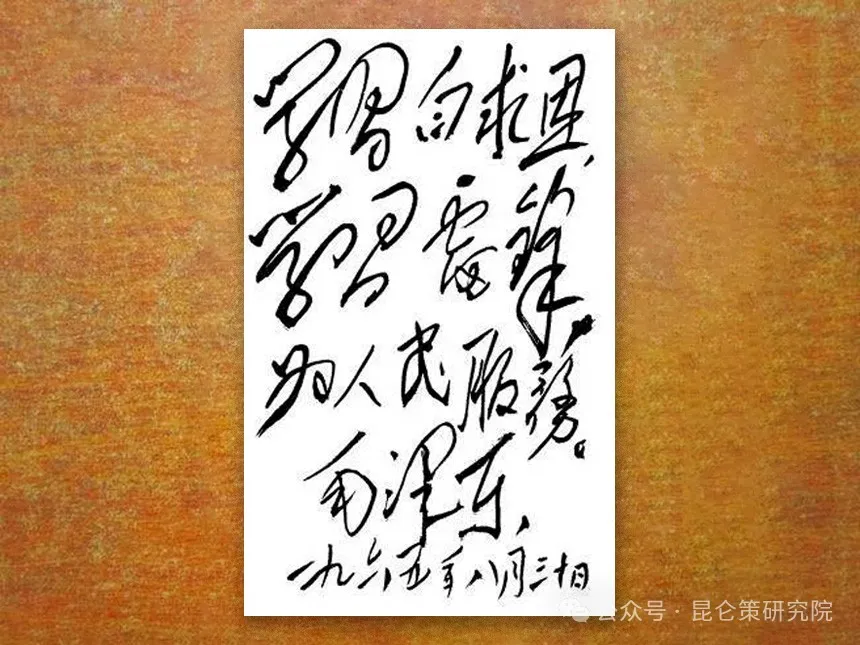 学习白求恩,
学习雷锋。
为人民服務。
毛泽东,
一九六五年八月三十日
公众号·昆仑策研究院